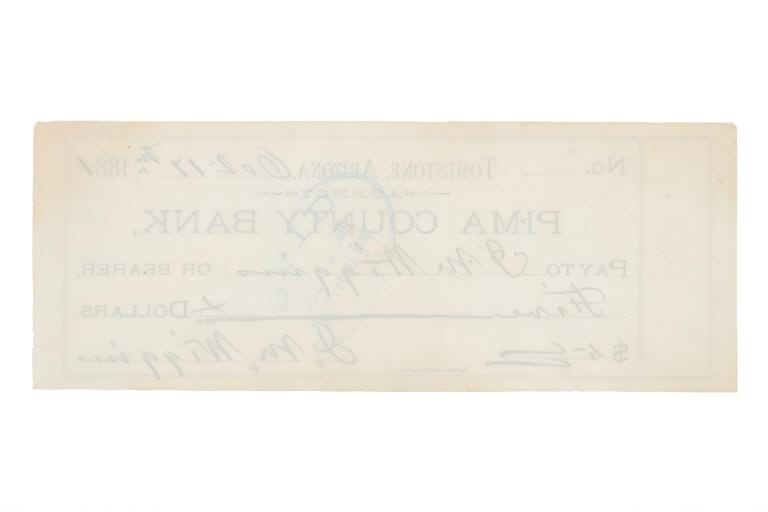 No. Tombstone, Arizona, Oct 17th 1881
PIMA COUNTY BANK,
PAY TO J. M. Wiggins OR BEARER,
Five DOLLARS
$5.00 J. M. Wiggins